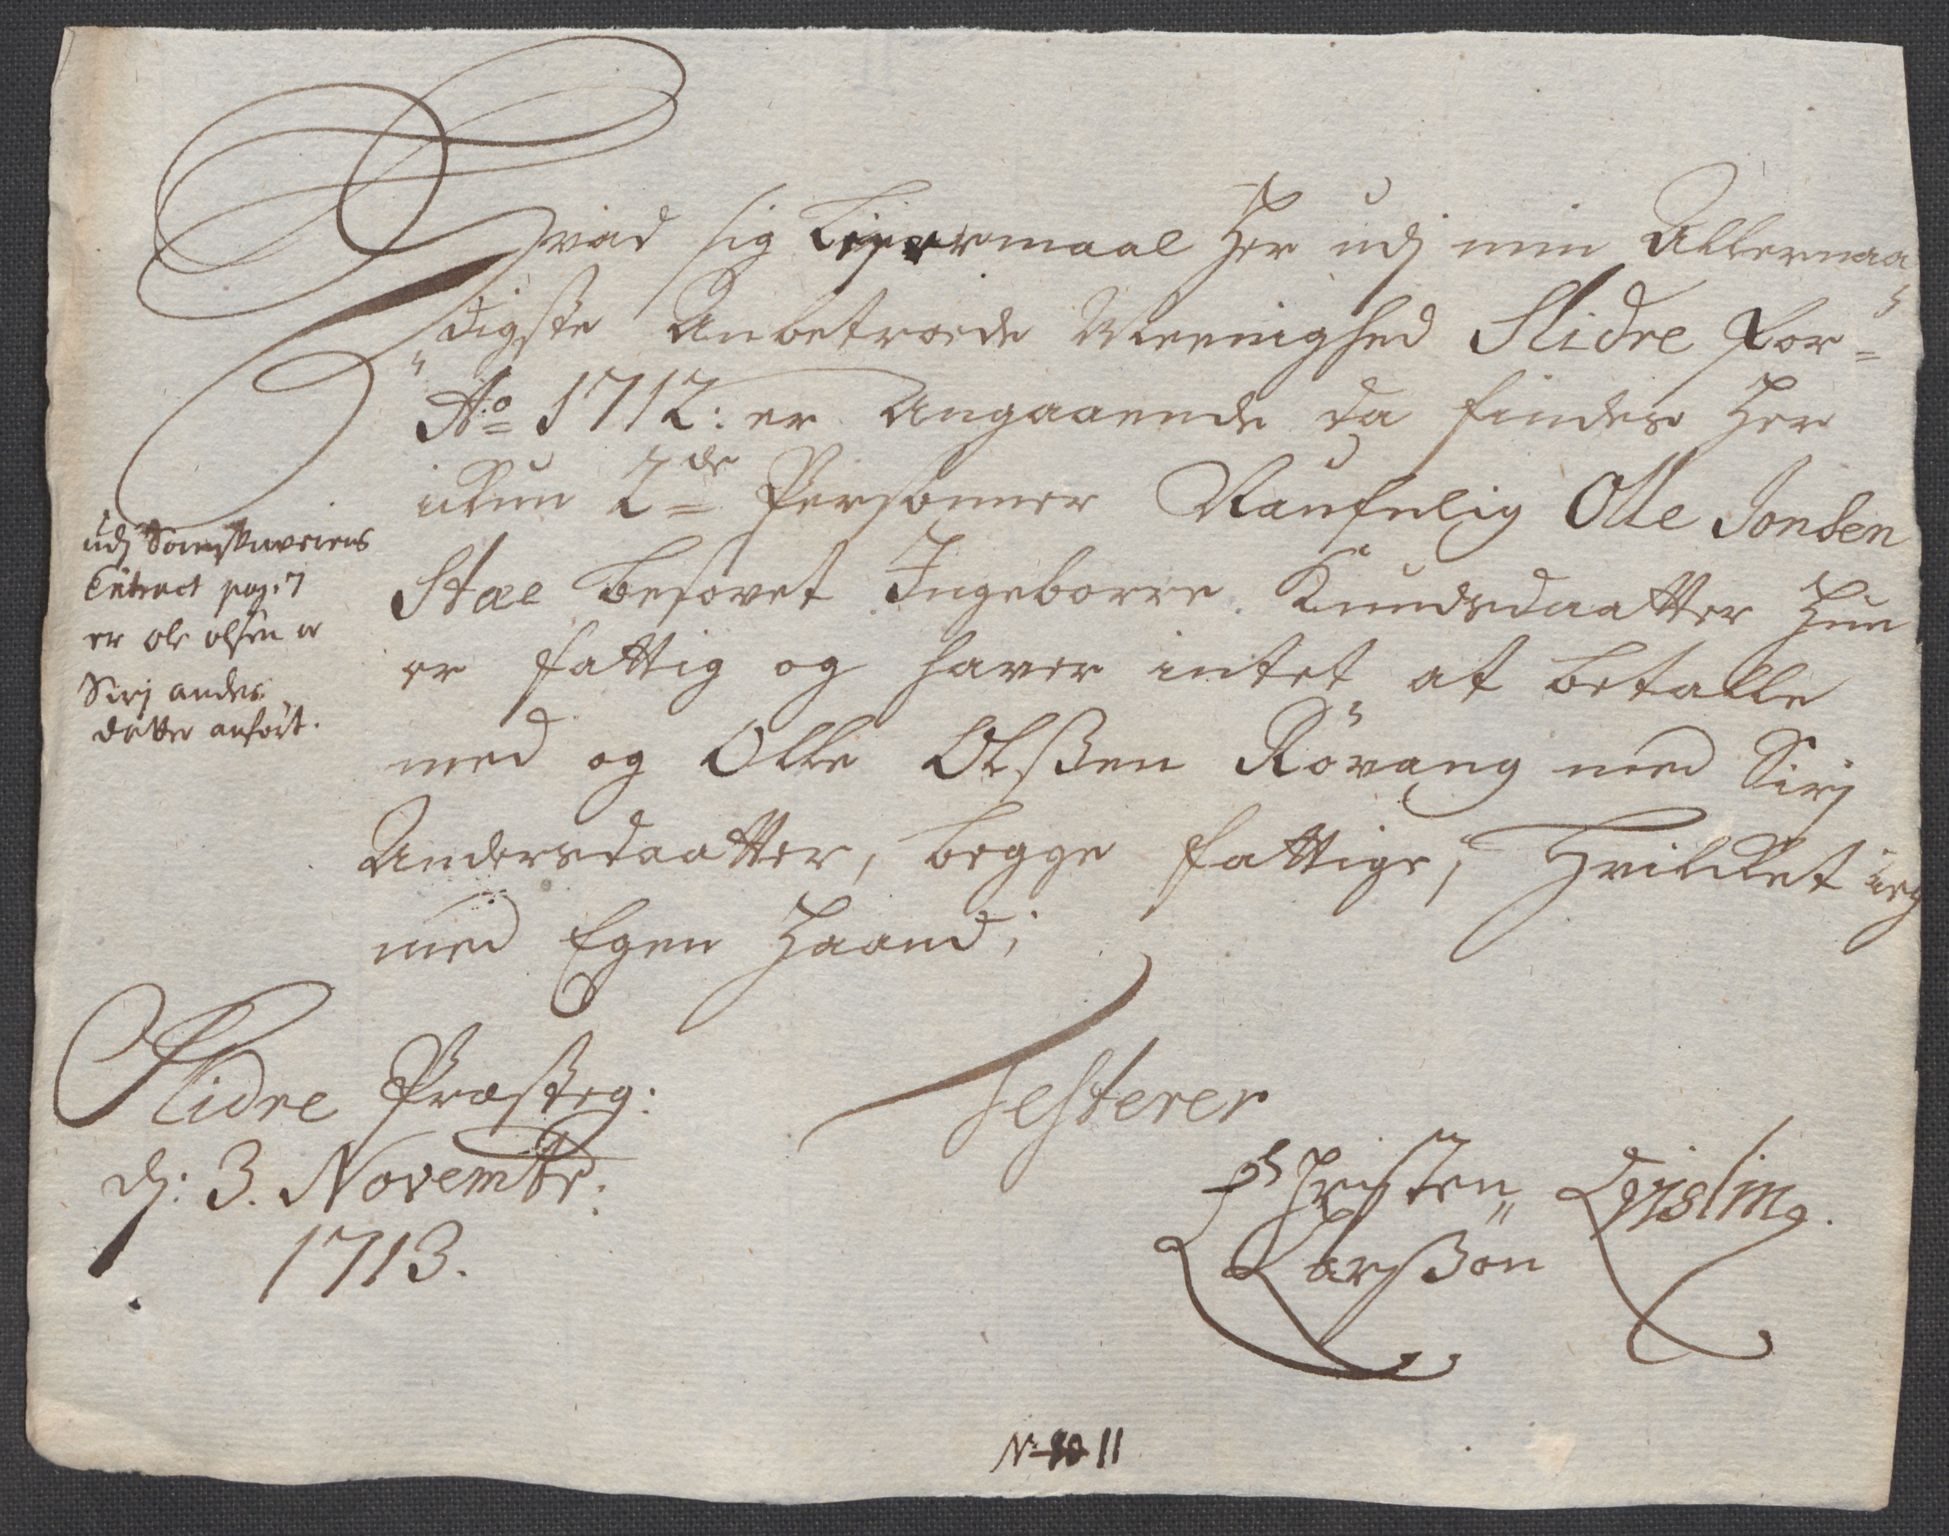 Hvad sig Lejermaal her udj min Allernaa
digste Anbetroede Meenighed Slidre for
Ao 1712: er Angaaende da findes her
ickun 2de Personner Naufnlig Olle Jonsen
Stæe besovet Ingeborre Knudsdaatter hun
er fattig og haver intet at betalle
med og Olle Olsßen Røvang med Sirj
Andersdaatter, begge fattige, hvilcket ieg
med Egen Haand;
udj Sorenskriverens
Extract pag. 7
er ole olsen w
Sirj anders
datter anført.
Slidre Præsteg:
dj: 3. Novembr:
1713.
Testerer
Christen Gejsling
Larsßøn
No 10 11